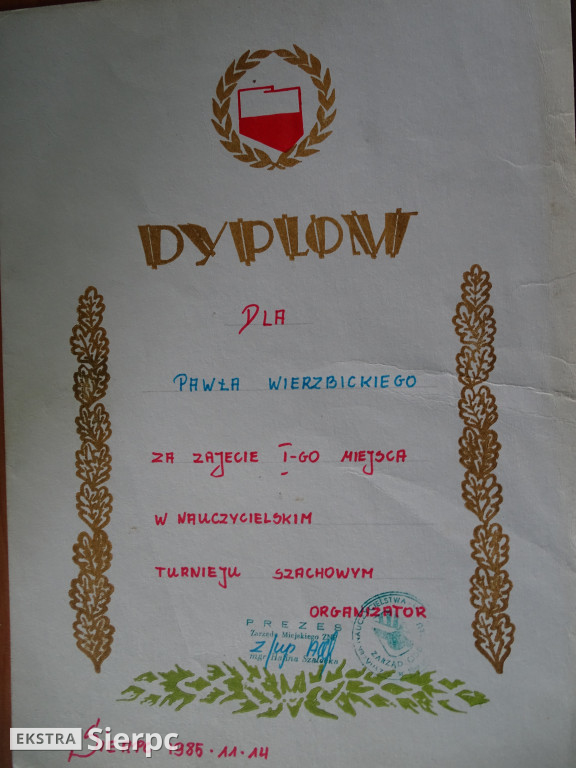 DYPLOM
DLA
PAWŁA WIERZBICKIEGO
ZA ZAJĘCIE I-GO MIEJSCA
W NAUCZYCIELSKIM
TURNIEJU SZACHOWYM
ORGANIZATOR
PREZES
Zarządu Miejskiego ZNP
z/up
mgr Halina
EKSTRA Sierpc
1985.11.14